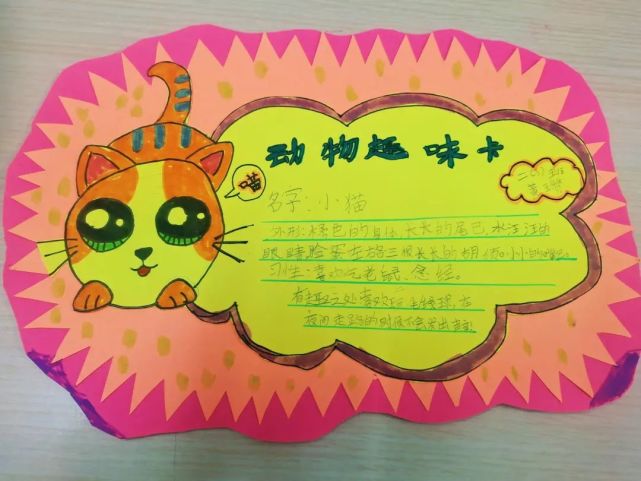 动物趣味卡
喵
二(1)班
名字:小猫
外形:橘色的身体,长长的尾巴,水汪汪的
眼睛脸蛋左右三根长长的胡须,小小的嘴巴。
习性:喜欢吃老鼠、念经。
有趣之处喜欢玩毛线球,在
夜间走路的时候不会发出声音